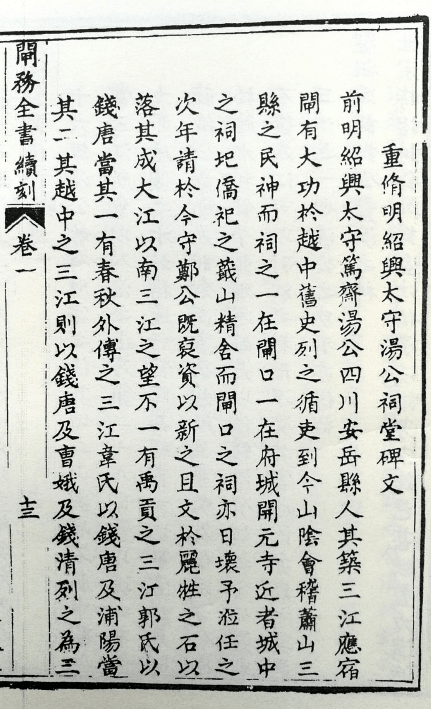 重脩明紹興太守湯公祠堂碑文
前明紹興太守篤齋湯公四川安岳縣人其築三江應宿
閘有大功於越中舊史列之循吏到今山陰會稽蕭山三
縣之民神而祠之一在閘口一在府城開元寺近者城中
之祠圯僑祀之蕺山精舍而閘口之祠亦日壞予涖任之
次年請於今守鄭公既裒資以新之且文於麗牲之石以
落其成大江以南三江之望不一有禹貢之三江郭氏以
錢唐當其一有春秋外傳之三江韋氏以錢唐及浦陽當
其二其越中之三江則以錢唐及曹娥及錢清列之為三
閘務全書續刻
卷一
十三